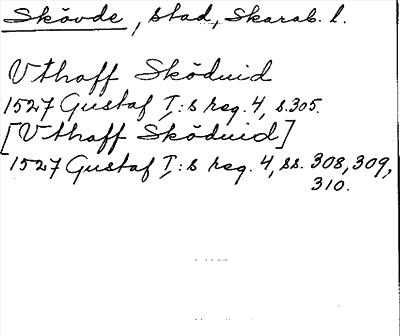 Skövde, stad, Skarab. l.
Vthaff Sköduid
1527 Gustaf I:s reg. 4, s. 305.
[Vthaff Sköduid]
1527 Gustaf I:s reg. 4, ss. 308, 309,
310.